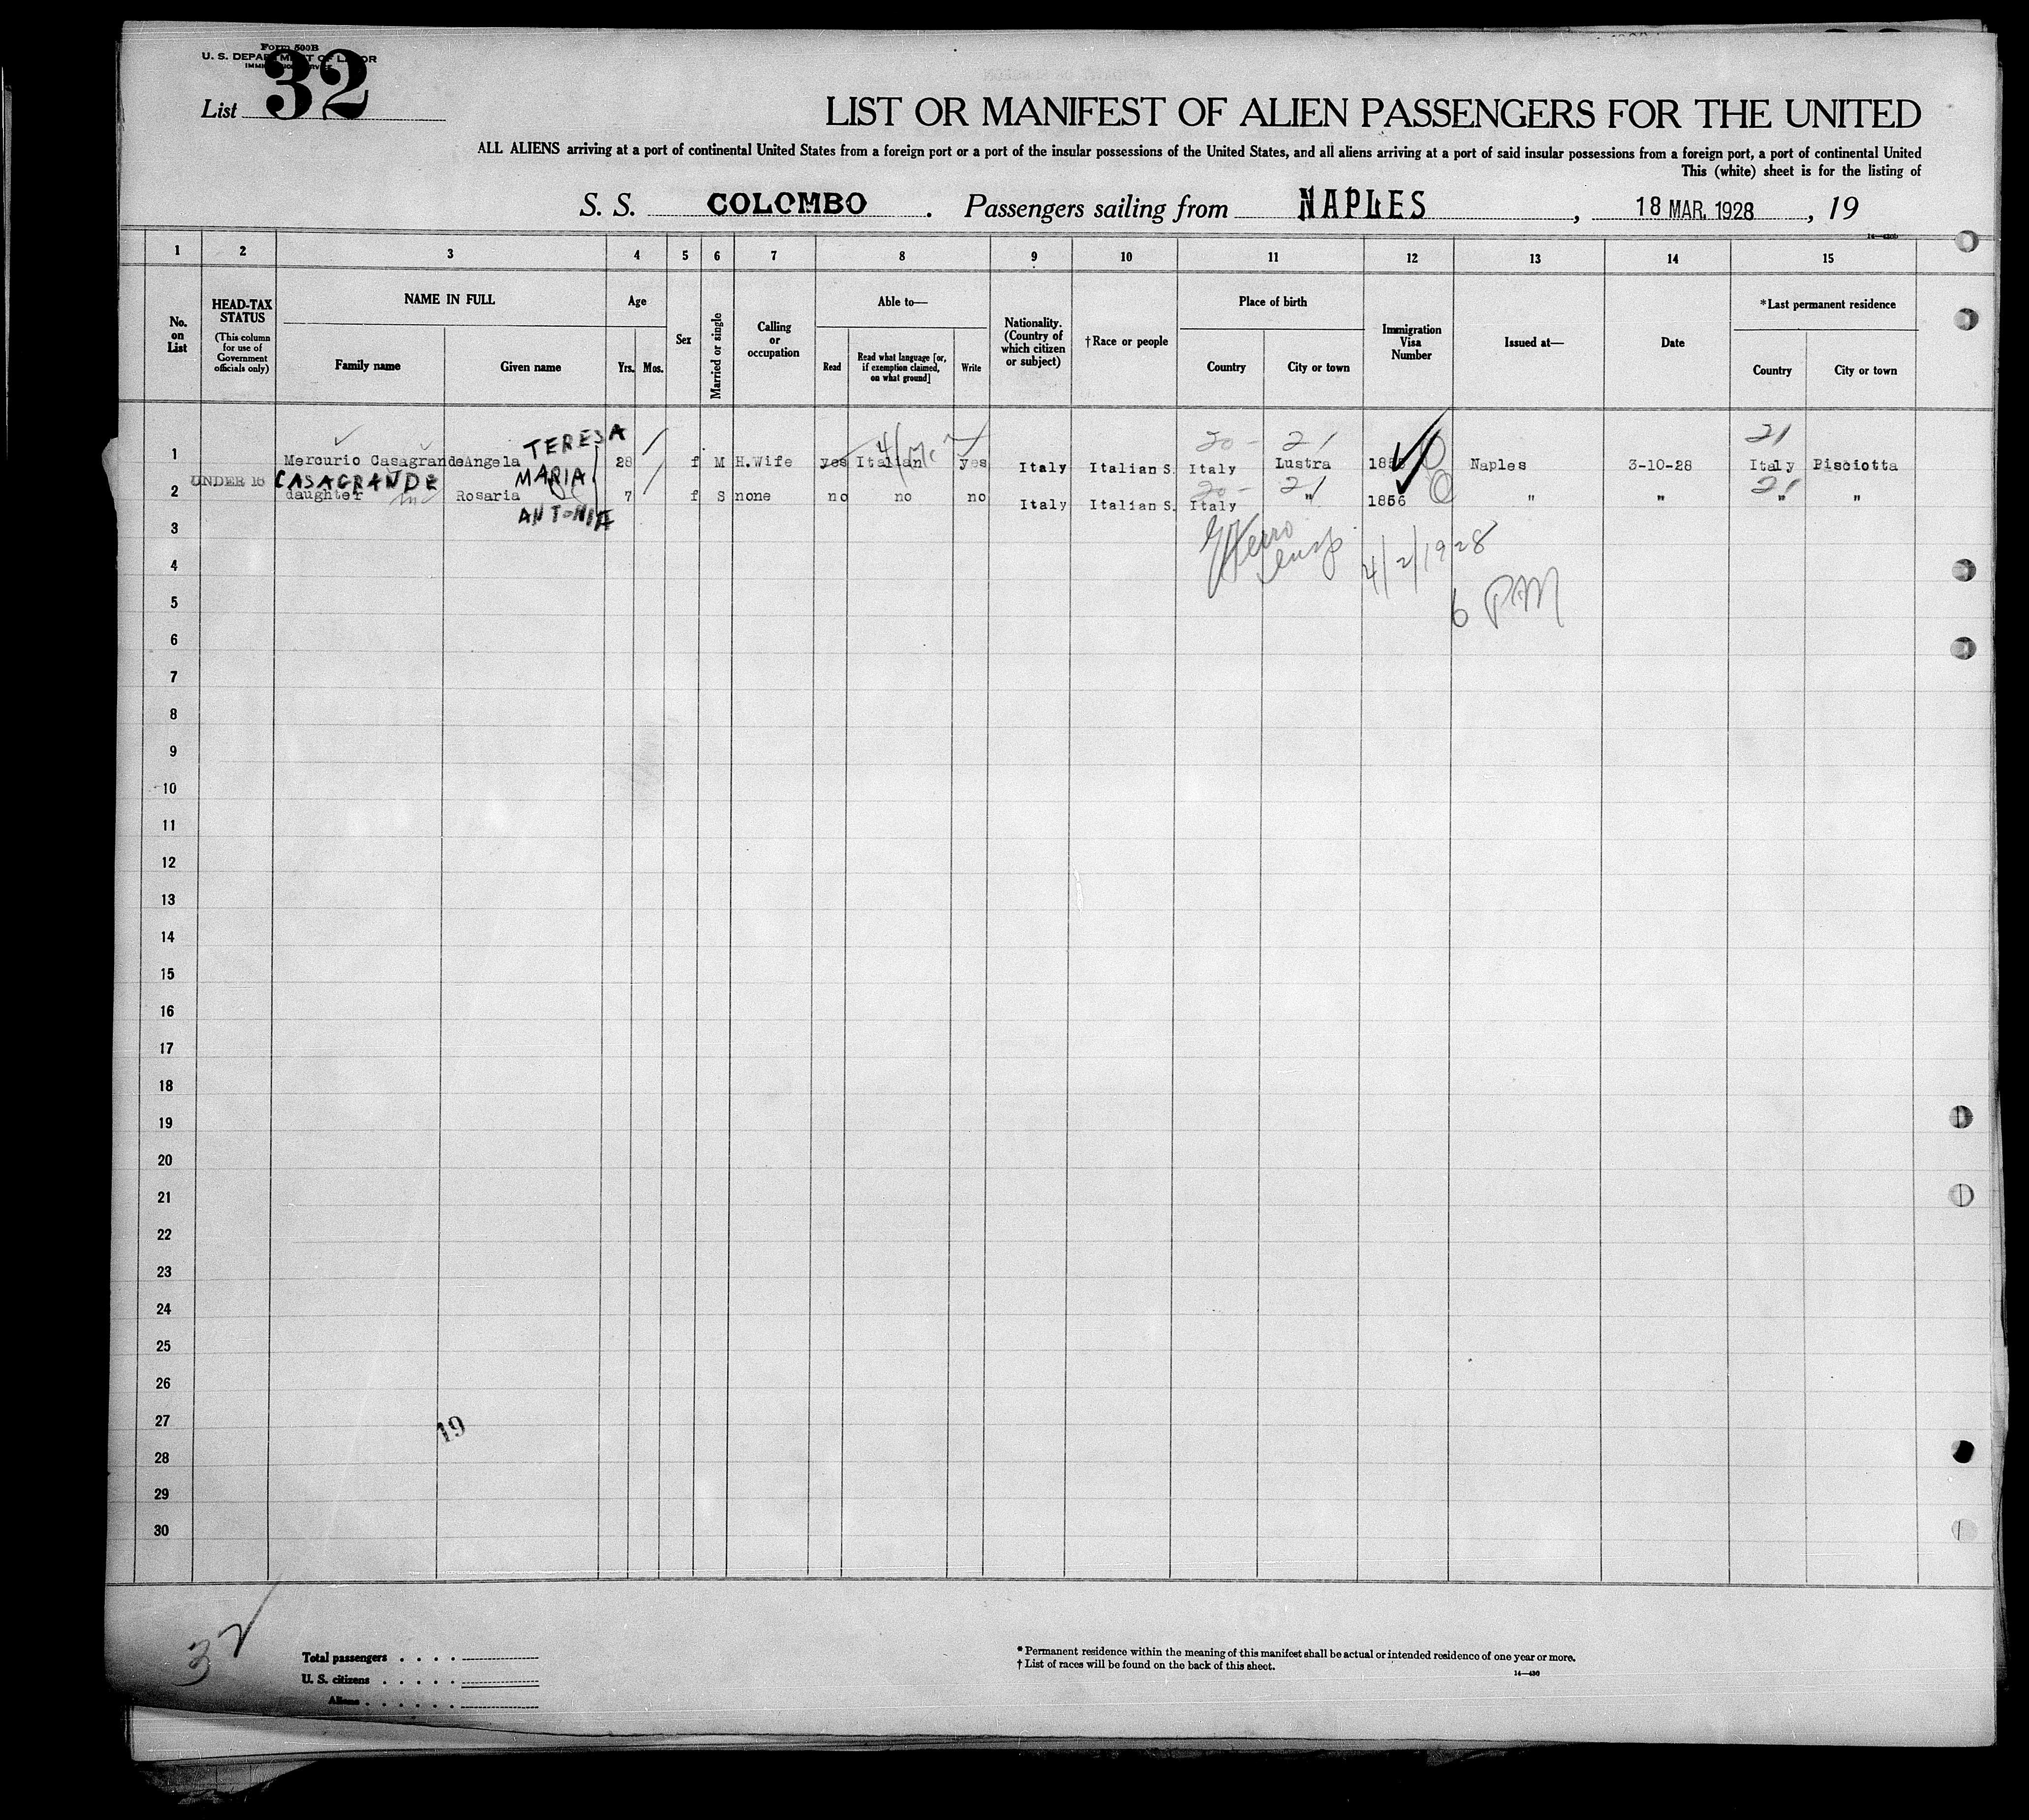 Form 500B
U. S. DEPARTMENT OF LABOR
IMMIGRATION SERVICE
List 32
LIST OR MANIFEST OF ALIEN PASSENGERS FOR THE UNITED
ALL ALIENS arriving at a port of continental United States from a foreign port or a port of the insular possessions of the United States, and all aliens arriving at a port of said insular possessions from a foreign port, a port of continental United
This (white) sheet is for the listing of
S. S. COLOMBO. Passengers sailing from NAPLES, 18 MAR. 1928, 19
1 2 3 4 5 6 7 8 9 10 11 12 13 14 15
No. on List
HEAD-TAX STATUS (This column for use of Government officials only)
NAME IN FULL
Family name
Given name
Age
Yrs. Mos.
Sex
Married or single
Calling or occupation
Able to—
Read
Read what language [or, if exemption claimed, on what ground]
Write
Nationality. (Country of which citizen or subject)
†Race or people
Place of birth
Country
City or town
Immigration Visa Number
Issued at—
Date
*Last permanent residence
Country
City or town
TERESA 4/ 20- 21 21
1 Mercurio Casagrande Angela 28 f M H.Wife yes Italian yes Italy Italian S. Italy Lustra Naples 3-10-28 Italy Pisciotta
UNDER 16 CASAGRANDE MARIA 20- 21 21
2 daughter Rosaria 7 f S none no no no Italy Italian S. Italy " 1856 " " " "
ANTONIA
3
4 4/2/1928
5 6 PM
6
7
8
9
10
11
12
13
14
15
16
17
18
19
20
21
22
23
24
25
26
27 19
28
29
30
32
Total passengers . . . .
U. S. citizens . . . . .
Aliens . . . . . .
* Permanent residence within the meaning of this manifest shall be actual or intended residence of one year or more.
† List of races will be found on the back of this sheet.
14—430